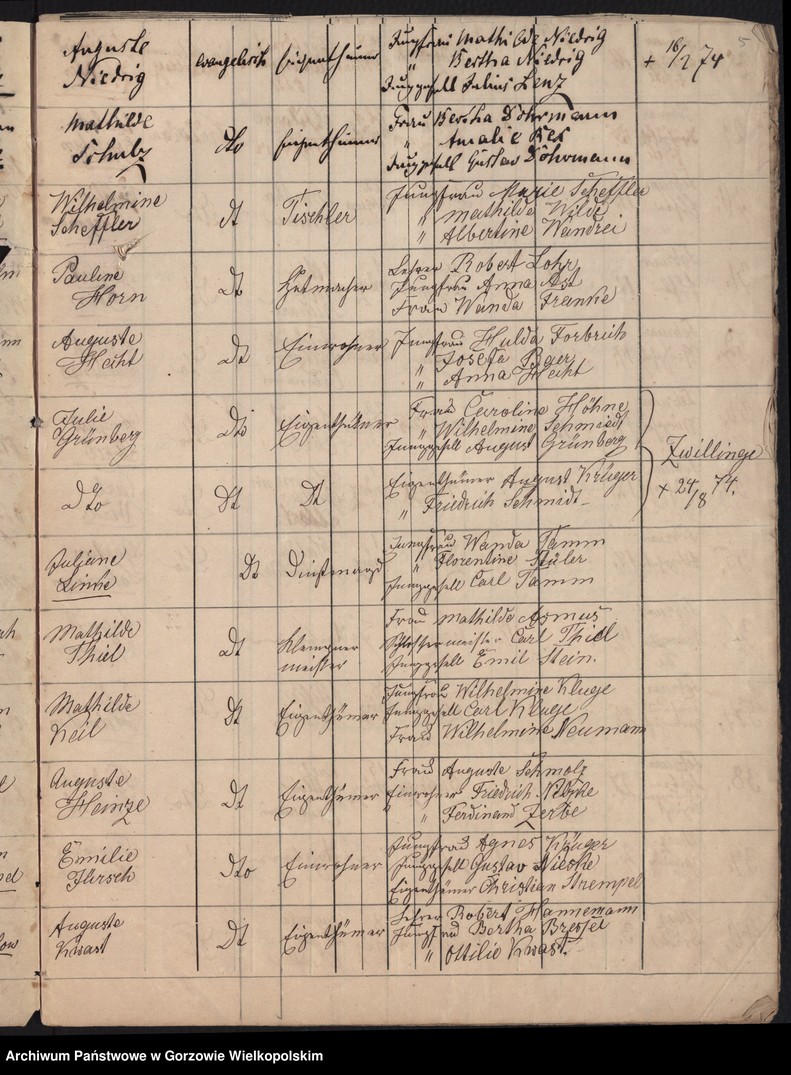 Auguste
Niedrig
evangelisch
Eigenthümer
Jungfrau Mathilde Niedrig
" Bertha Niedrig
Junggesell Julius Lenz
+ 16/2 74
Mathilde
Schulz
dto
Eigenthümer
Frau Bertha Döhrmann
" Amalie
Junggesell Gustav Döhrmann
Wilhelmine
Scheffler
dt
Tischler
Jungfrau Marie Scheffler
" Mathilde Wilde
" Albertine Wandrei
Pauline
Horn
dt
Hutmacher
Lehrer Robert Lohr
Jungfrau Anna Ast
Frau Wanda Franke
Auguste
Hecht
Dt
Einwohner
Jungfrau Hulda Forbrich
" Josefa Beyer
" Anna Hecht
Julie
Grünberg
Dto
Eigenthümer
Frau Caroline Höhne
" Wilhelmine Schmidt
Junggesell August Grünberg
Zwillinge
+ 24/8 74.
Dto
Dt
Dt
Eigenthümer August Krüger
" Friedrich Schmidt
Juliane
Linke
Dt
Dienstmagd
Jungfrau Wanda Tamm
" Florentine Stüler
Junggesell Carl Tamm
Mathilde
Thiel
dt
Klempner
meister
Frau Mathilde Asmus
Schlossermeister Carl Thiel
Junggesell Emil Stein.
Mathilde
Keil
Dt
Eigenthümer
Jungfrau Wilhelmine Kluge
Junggesell Carl Kluge
Frau Wilhelmine Neumann
Auguste
Heinze
Dt
Eigenthümer
Frau Auguste Schmolz
Einwohner Friedrich Nitzke
" Ferdinand Zerbe
Emilie
Hirsch
Dto
Einwohner
Jungfrau Agnes Krüger
Junggesell Gustav Nieske
Eigenthümer Christian Strempel
Auguste
Kwast
Dt
Eigenthümer
Lehrer Robert Hannemann
Jungfrau Bertha Bressel
" Ottilie Kwast.
Archiwum Państwowe w Gorzowie Wielkopolskim